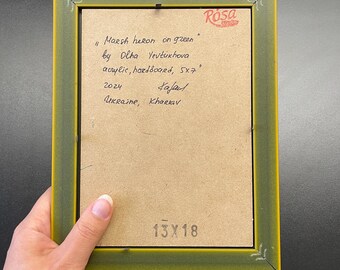 RosA
„Marsh heron on green"
by Olha Yevtukhova
acrylic, hardboard, 5x7"
2024
Ukraine, Kharkiv
13X18